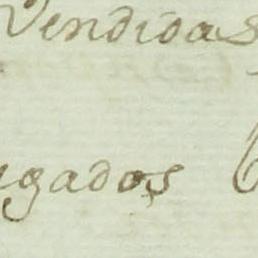 Vendidas
gados